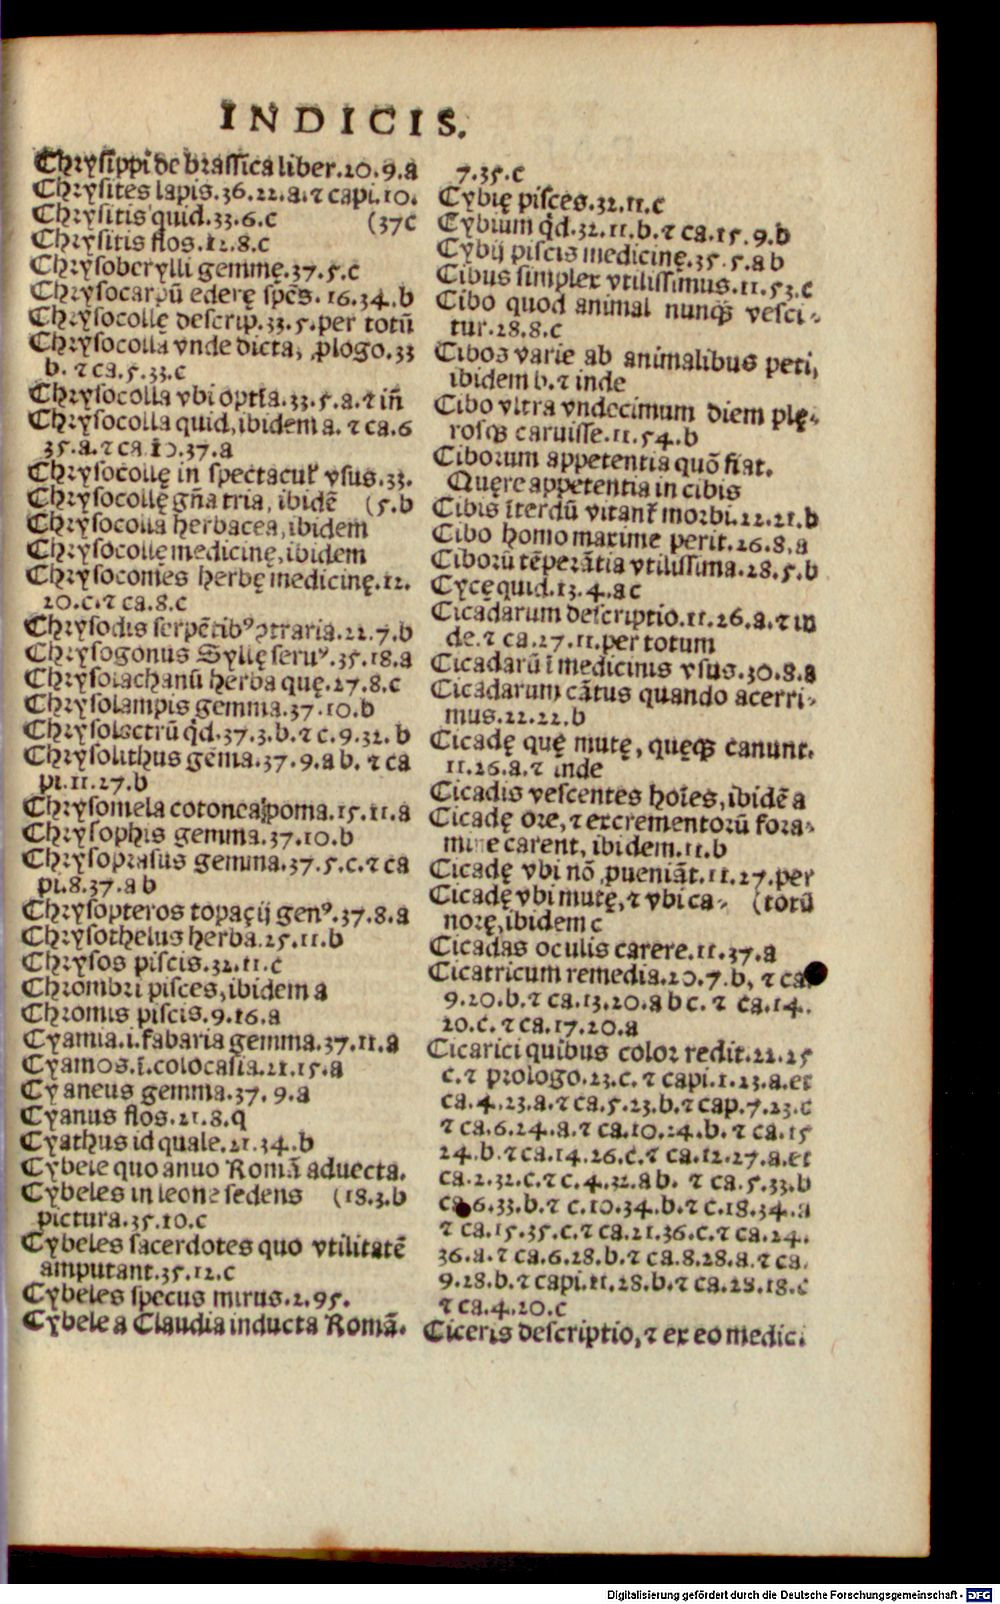 INDICIS.
Chrysippi de brassica liber.20.9.a
Chrysites lapis.36.22.a.⁊ capi.10.
Chrysitis quid.33.6.c (37c
Chrysitis flos.12.8.c
Chrysoberylli gemmę.37.5.c
Chrysocarpū ederę spēs.16.34.b
Chrysocollę descrip.33.5.per totū
Chrysocolla vnde dicta, ꝓlogo.33
b.⁊ ca.5.33.c
Chrysocolla vbi optīa.33.5.a.⁊ in̄
Chrysocolla quid, ibidem a. ⁊ ca.6
35.a.⁊ ca.10.37.a
Chrysocollę in spectacuł vsus.33.
Chrysocollę gn̄a tria, ibidē (5.b
Chrysocolla herbacea, ibidem
Chrysocollę medicinę, ibidem
Chrysocomes herbę medicinę.12.
20.c.⁊ ca.8.c
Chrysodis serpētibꝰ ↄtraria.22.7.b
Chrysogonus Syllę seruꝰ.35.18.a
Chrysolachanū herba quę.27.8.c
Chrysolampis gemma.37.10.b
Chrysolectrū qd.37.3.b.⁊ c.9.32.b
Chrysolithus gēma.37.9.a b.⁊ ca
pi.11.27.b
Chrysomela cotonea poma.15.11.a
Chrysophis gemma.37.10.b
Chrysoprasus gemma.37.5.c.⁊ ca
pi.8.37.a b
Chrysopteros topaçij genꝰ.37.8.a
Chrysothelus herba.25.11.b
Chrysos piscis.32.11.c
Chrombri pisces, ibidem a
Chromis piscis.9.16.a
Cyamia.i.fabaria gemma.37.11.a
Cyamos.i.colocasia.21.15.a
Cyaneus gemma.37.9.a
Cyanus flos.21.8.q
Cyathus id quale.21.34.b
Cybele quo anno Romā aduecta.
Cybeles in leone sedens (18.3.b
pictura.35.10.c
Cybeles sacerdotes quo vtilitatē
amputant.35.12.c
Cybeles specus mirus.2.95.
Cybele a Claudia inducta Romā.
7.35.c
Cybię pisces.32.11.c
Cybium qd.32.11.b.⁊ ca.15.9.b
Cybij piscis medicinę.35.5.a b
Cibus simplex vtilissimus.11.53.c
Cibo quod animal nunqꝫ vesci-
tur.28.8.c
Cibos varie ab animalibus peti,
ibidem b.⁊ inde
Cibo vltra vndecimum diem plę-
rosqꝫ caruisse.11.54.b
Ciborum appetentia quō fiat.
Quęre appetentia in cibis
Cibis īterdū vitanť morbi.22.21.b
Cibo homo maxime perit.26.8.a
Ciborū tēperātia vtilissima.28.5.b
Cycę quid.13.4.a c
Cicadarum descriptio.11.26.a.⁊ in
de.⁊ ca.27.11.per totum
Cicadarū ī medicinis vsus.30.8.a
Cicadarum cātus quando acerri-
mus.22.22.b
Cicadę quę mutę, quęqꝫ canunt.
11.26.a.⁊ inde
Cicadis vescentes hoīes, ibidē a
Cicadę ore, ⁊ excrementorū fora-
mine carent, ibidem.11.b
Cicadę vbi nō ꝓueniāt.11.27.per
Cicadę vbi mutę, ⁊ vbi ca- (totū
norę, ibidem c
Cicadas oculis carere.11.37.a
Cicatricum remedia.20.7.b, ⁊ ca.
9.20.b.⁊ ca.13.20.a b c.⁊ ca.14.
20.c.⁊ ca.17.20.a
Cicarici quibus color redit.22.25
c.⁊ prologo.23.c.⁊ capi.1.23.a.et
ca.4.23.a.⁊ ca.5.23.b.⁊ cap.7.23.c
⁊ ca.6.24.a.⁊ ca.10.24.b.⁊ ca.15
24.b.⁊ ca.14.26.c.⁊ ca.12.27.a.et
ca.2.32.c.⁊ c.4.32.a b.⁊ ca.5.33.b
ca.6.33.b.⁊ c.10.34.b.⁊ c.18.34.a
⁊ ca.15.35.c.⁊ ca.21.36.c.⁊ ca.24.
36.a.⁊ ca.6.28.b.⁊ ca.8.28.a.⁊ ca.
9.28.b.⁊ capi.11.28.b.⁊ ca.28.18.c
⁊ ca.4.20.c
Ciceris descriptio, ⁊ ex eo medici
Digitalisierung gefördert durch die Deutsche Forschungsgemeinschaft - DFG